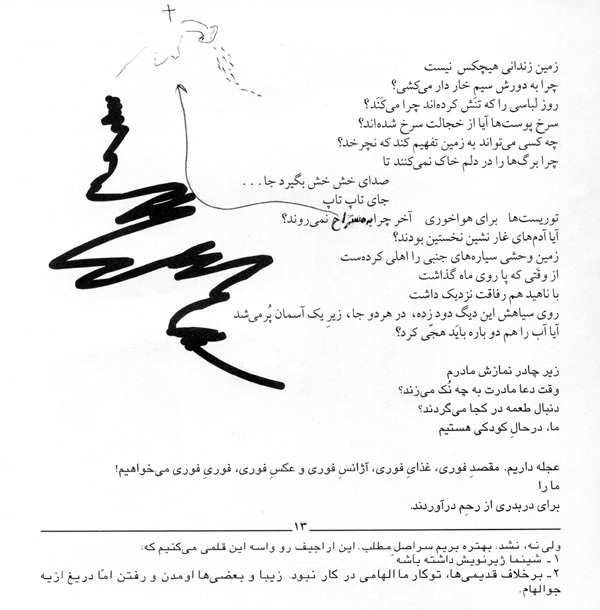 زمین زندانی هیچکس نیست
چرا به دورش سیم خار دار می‌کشی؟
روز لباسی را که تنَش کرده‌اند چرا می‌کَنَد؟
سرخ پوست‌ها آیا از خجالت سرخ شده‌اند؟
چه کسی می‌تواند به زمین تفهیم کند که نچرخد؟
چرا برگ‌ها را در دلم خاک نمی‌کنند تا
صدای خش خش بگیرد جا...
جای تاپ تاپ
توریست‌ها برای هواخوری آخر چرا به نمی‌روند؟
آیا آدم‌های غار نشین نخستین بودند؟
زمین وحشی سیاره‌های جنبی را اهلی کرده‌ست
از وقتی که پا روی ماه گذاشت
با ناهید هم رفاقت نزدیک داشت
روی سیاهش این دیگ دود زده، در هر دو جا، زیرِ یک آسمان پُر می‌شد
آیا آب را هم دو باره باید هجّی کرد؟
زیر چادر نمازش مادرم
وقت دعا مادرت به چه نُک می‌زند؟
دنبال طعمه در کجا می‌گردند؟
ما، درحالِ کودکی هستیم
عجله داریم. مقصدِ فوری، غذایِ فوری، آژانسِ فوری و عکسِ فوری، فوریِ فوری می‌خواهیم!
ما را
برای دربدری از رحِم درآوردند.
۱۳
ولی نه، نشد. بهتره بریم سراصلِ مطلب. این اراجیف رو واسه این قلمی می‌کنیم که:
۱ـ شینما زیرنویش داشته باشه
۲ـ برخلاف قدیمی‌ها، توکار ما الهامی در کار نبود. زیبا و بعضی‌ها اومدن و رفتن امّا دریغ ازیه
جوالهام.